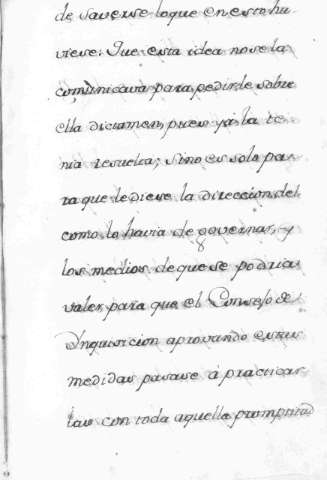 de saverse loque en esto hu
viese: Que esta idea no se la
comunicava para pedirle sobre
ella dictamen, pues ya la te
nia resuelta; sino es solo pa
ra que le diese la direccion del
como lo havia de governar, y
los medios de que se podria
valer, para que el Consejo de
Ynquisicion aprovando estas
medidas pasase á practicar
las con toda aquella promptitud